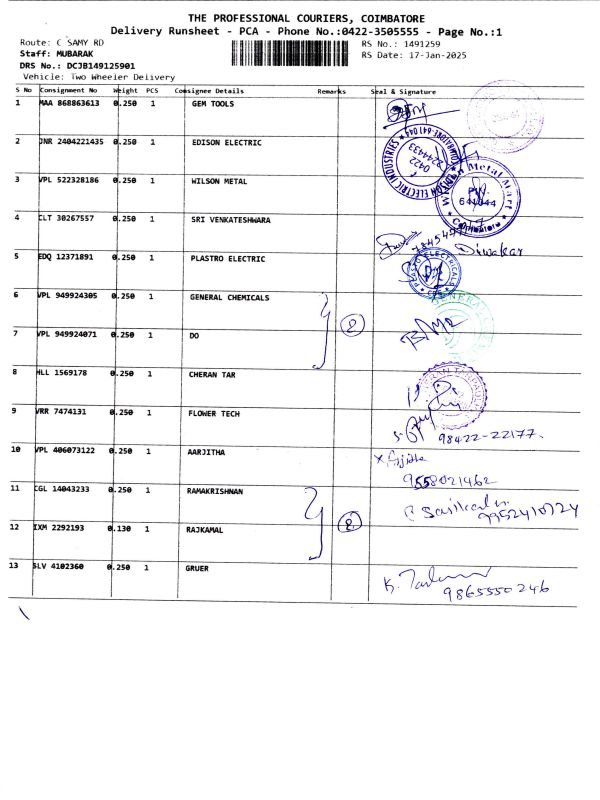 THE PROFESSIONAL COURIERS, COIMBATORE
Delivery Runsheet - PCA - Phone No.:0422-3505555 - Page No.:1
Route: C SAMY RD RS No.: 1491259
Staff: MUBARAK RS Date: 17-Jan-2025
DRS No.: DCJB149125901
Vehicle: Two Wheeler Delivery
S No Consignment No Weight PCS Consignee Details Remarks Seal & Signature
1 MAA 868863613 0.250 1 GEM TOOLS
2 JNR 2404221435 0.250 1 EDISON ELECTRIC
EDISON ELECTRIC INDUSTRIES * COIMBATORE-641 044 * 0422 2244433
3 VPL 522328186 0.250 1 WILSON METAL
Metal Mart 641044 * Coimbatore *
4 CLT 30267557 0.250 1 SRI VENKATESHWARA
Diwakar
5 EDQ 12371891 0.250 1 PLASTRO ELECTRIC
6 VPL 949924305 0.250 1 GENERAL CHEMICALS
2
7 VPL 949924071 0.250 1 DO
8 HLL 1569178 0.250 1 CHERAN TAR
9 VRR 7474131 0.250 1 FLOWER TECH
98422-22177.
10 VPL 406073122 0.250 1 AARJITHA
9558021462
11 CGL 14043233 0.250 1 RAMAKRISHNAN
9952410724
12 IXM 2292193 0.130 1 RAJKAMAL
2
13 SLV 4102360 0.250 1 GRUER
9865550246